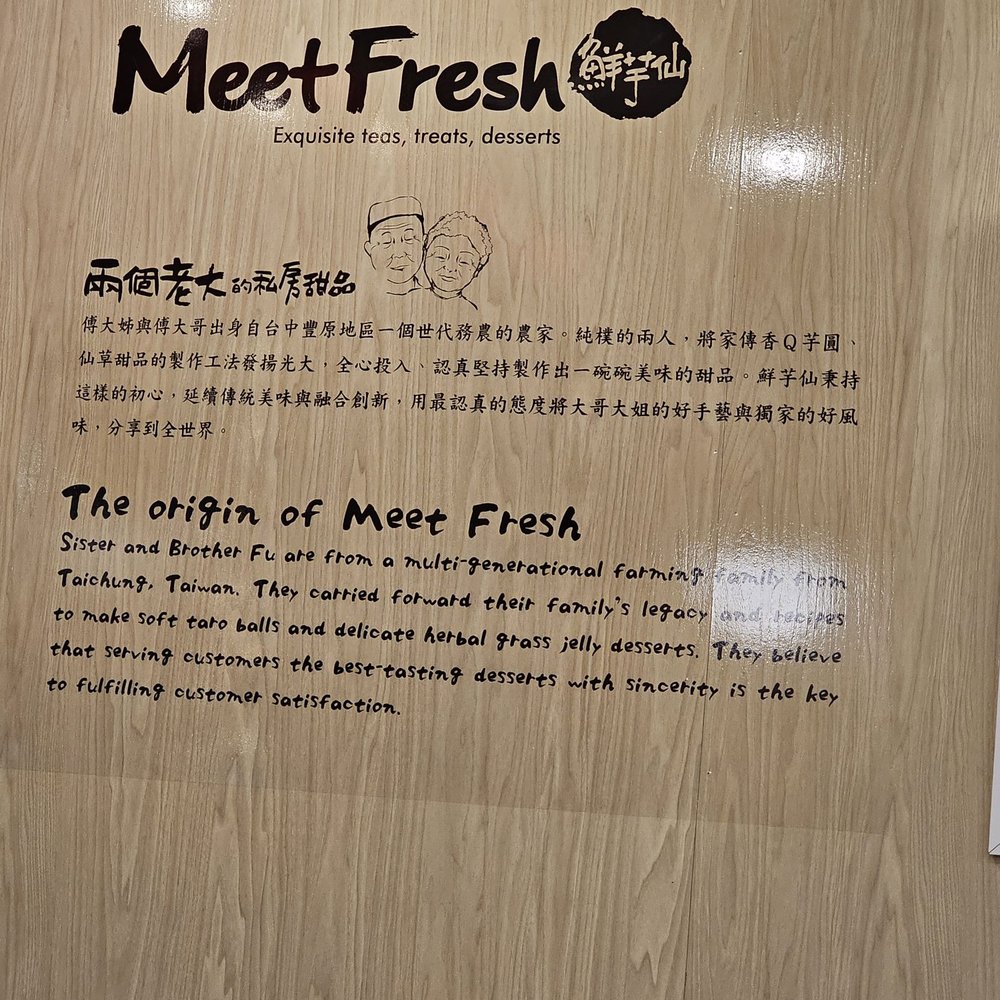 Meet Fresh 鮮芋仙
Exquisite teas, treats, desserts
兩個老大的私房甜品
傅大姊與傅大哥出身自台中豐原地區一個世代務農的農家。純樸的兩人，將家傳香Q芋圓、
仙草甜品的製作工法發揚光大，全心投入、認真堅持製作出一碗碗美味的甜品。鮮芋仙秉持
這樣的初心，延續傳統美味與融合創新，用最認真的態度將大哥大姐的好手藝與獨家的好風
味，分享到全世界。
The origin of Meet Fresh
Sister and Brother Fu are from a multi-generational farming family from
Taichung, Taiwan. They carried forward their family's legacy and recipes
to make soft taro balls and delicate herbal grass jelly desserts. They believe
that serving customers the best-tasting desserts with sincerity is the key
to fulfilling customer satisfaction.